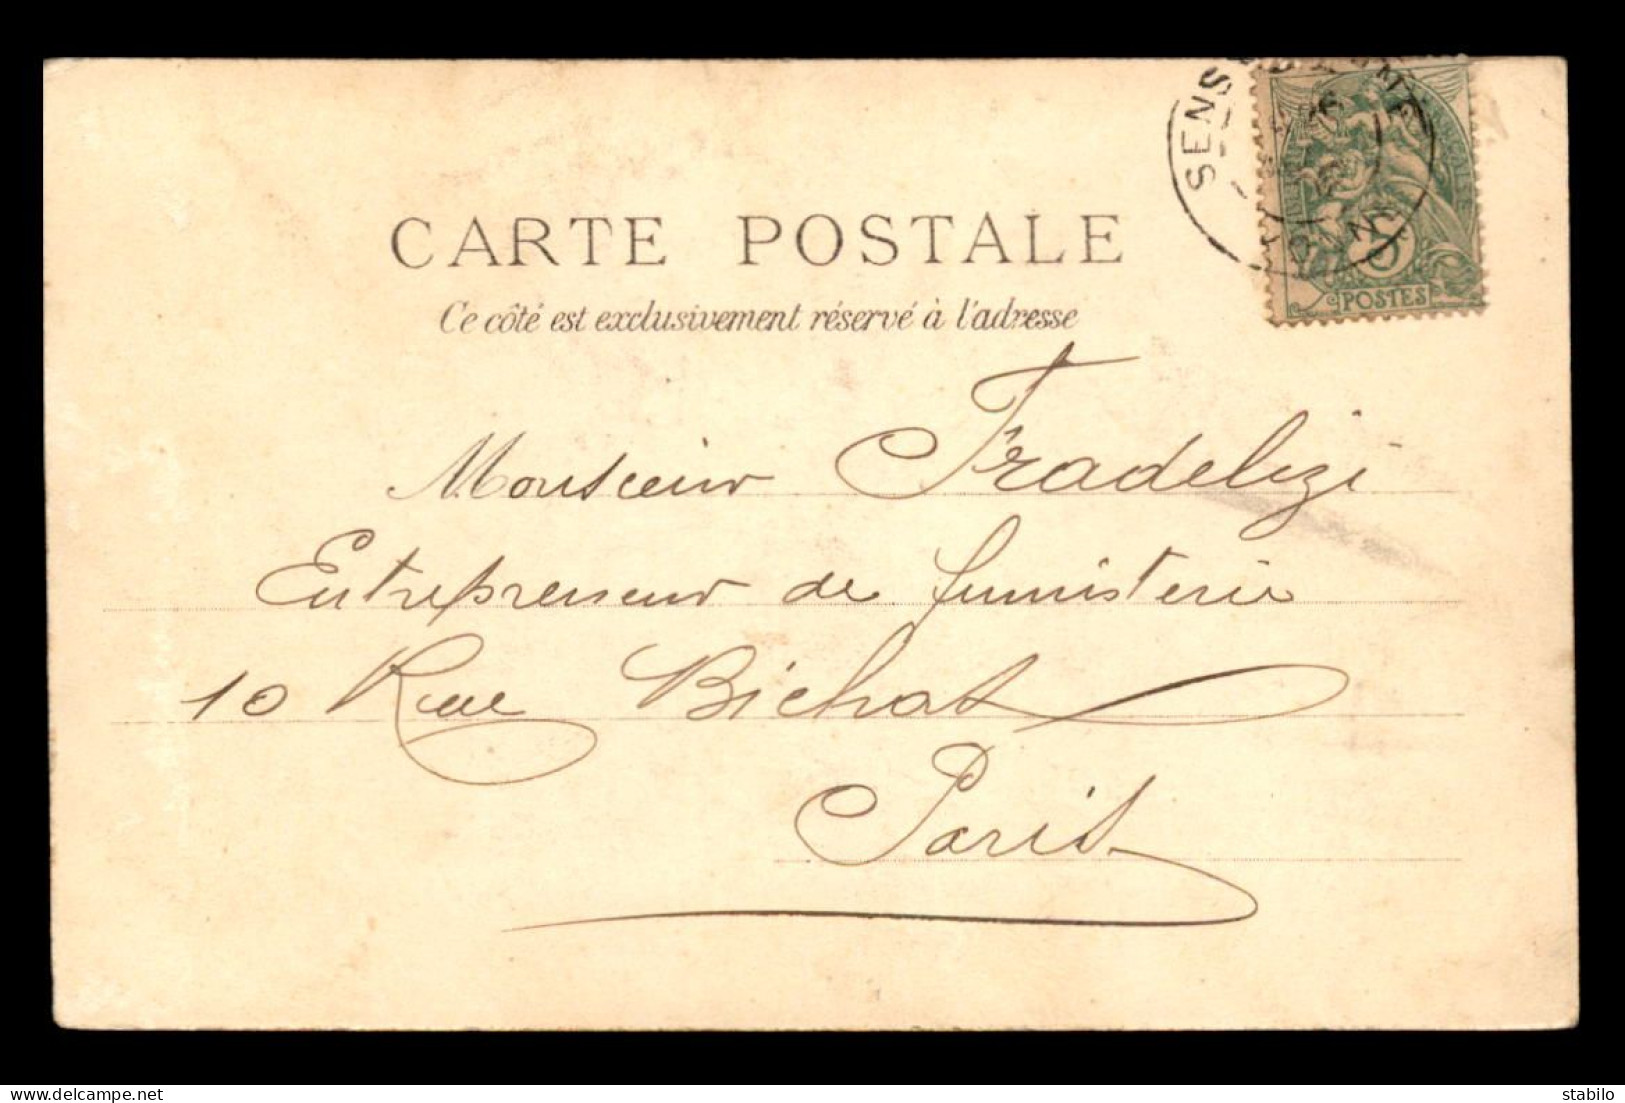 SENS
CARTE POSTALE
Ce côté est exclusivement réservé à l'adresse
5
POSTES
Monsieur Fradelizi
Entrepreneur de fumisterie
10 Rue Bichat
Paris
www.delcampe.net
stabilo